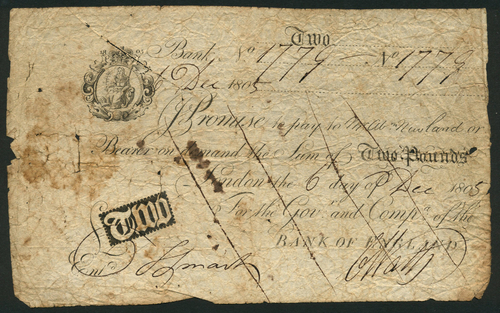 Two
Bank, No 1779 No 1779
6 Dec 1805
I Promise to pay to Mr Abm Newland or
Bearer on Demand the Sum of Two Pounds
London the 6 day of Dec 1805
For the Govr and Compa of the
BANK OF ENGLAND
£ Two
Entd